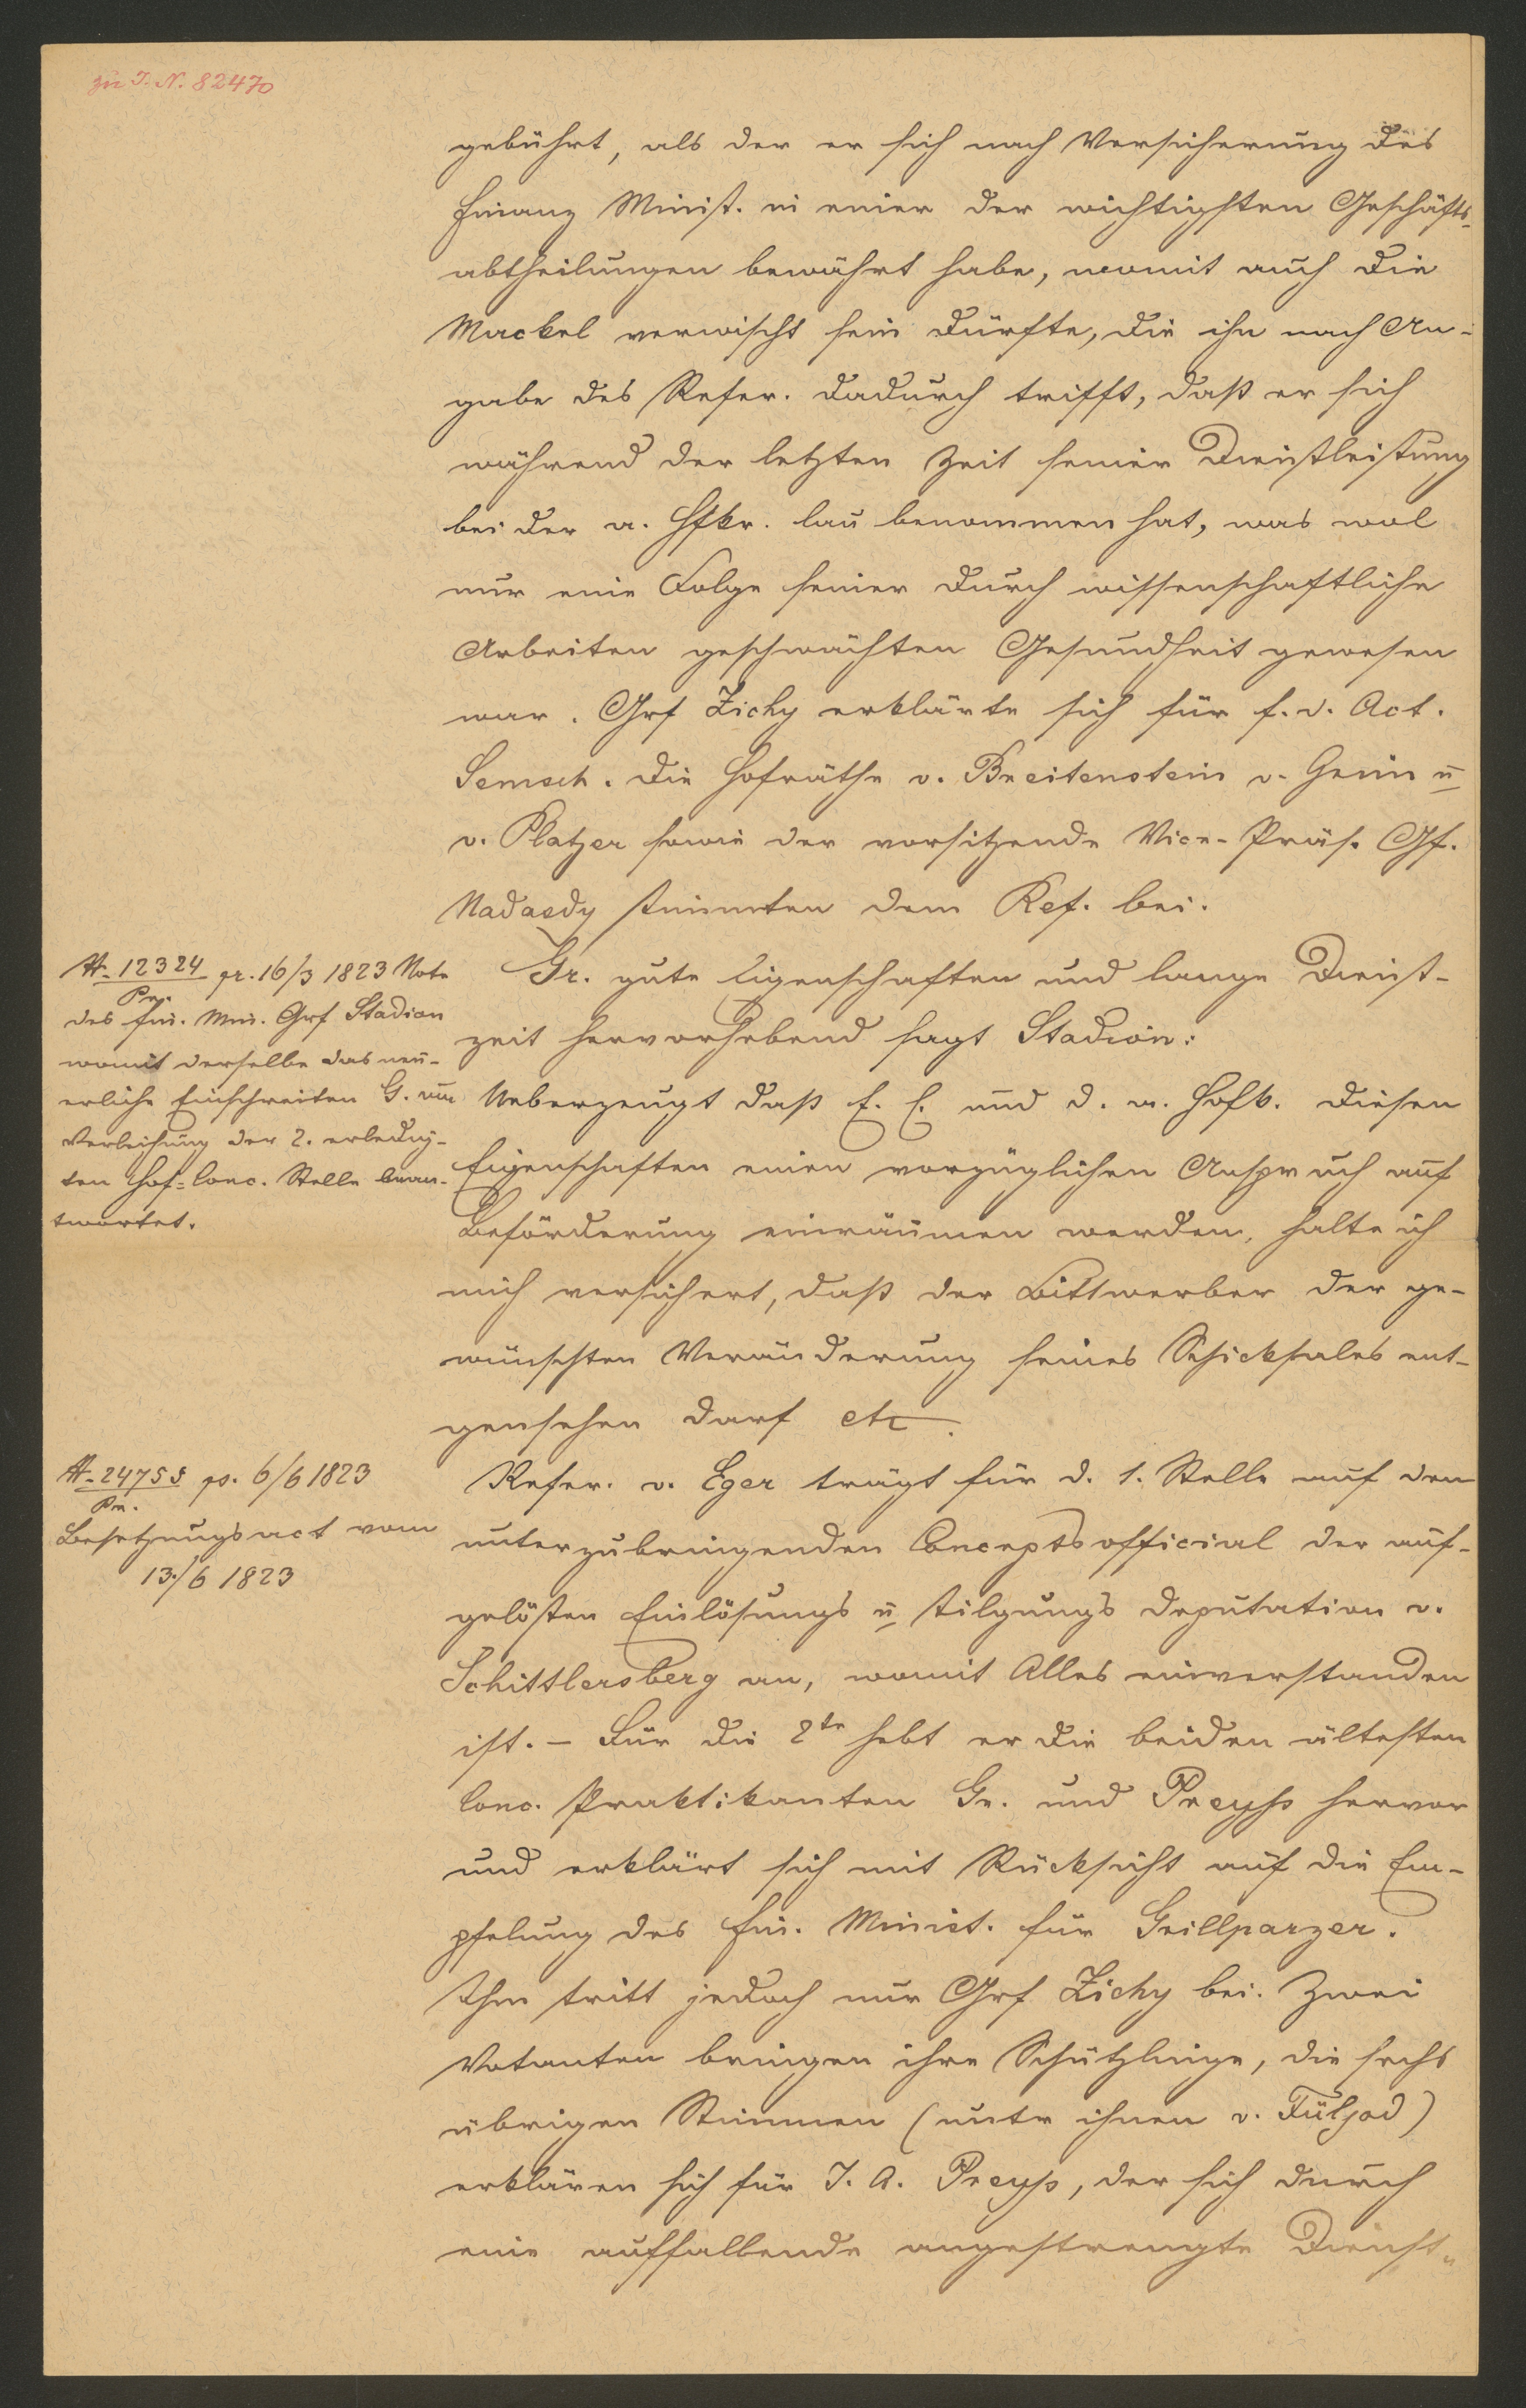 zu I. N. 82470
gebührt, als der er sich nach Versicherung des
Finanz Minist. in einer der wichtigsten Geschäfts-
abtheilungen bewährt habe, womit auch die
Mackel verwischt sein dürfte, die ihn nach An-
gabe des Refer. dadurch trifft, daß er sich
während der letzten Zeit seiner Dienstleistung
bei der a. Hfkr. lau benommen hat, was wol
nur eine Folge seiner durch wissenschaftliche
Arbeiten geschwächten Gesundheit gewesen
war. Grf Zichy erklärte sich für f. d. Act.
Semsch. Die Hofräthe v. Breitenstein v. Genin u
v. Platzer sowie der vorsitzende Vice-Präs. Gf.
Nadasdy stimmten dem Ref. bei.
A. 12324 pr. 16/3 1823 Note
Pr.
des Fin. Min. Grf Stadion
womit derselbe das neu-
erliche Einschreiten G. um
Verleihung der 2. erledig-
ten Hof-Conc. Stelle bean-
twortet.
Gr. gute Eigenschaften und lange Dienst-
zeit hervorhebend sagt Stadion:
Ueberzeugt daß E. E. und d. a. Hofk. diesen
Eigenschaften einen vorzüglichen Anspruch auf
Beförderung einräumen werden, halte ich
mich versichert, daß der Bittwerber der ge-
wünschten Veränderung seines Schicksales ent-
gensehen darf etc.
A. 24755 ps. 6/6 1823
Pr.
Besetzungsact vom
13./6 1823
Refer. v. Eger trägt für d. 1. Stelle auf den
unterzubringenden Conceptsofficial der auf-
gelösten Einlösungs u Tilgungs Deputation v.
Schittlersberg an, womit Alles einverstanden
ist. – Für die 2te hebt er die beiden ältesten
Conc. Praktikanten Gr. und Preyss hervor
und erklärt sich mit Rücksicht auf die Em-
pfelung des Fin. Minist. für Grillparzer.
Ihm tritt jedoch nur Grf Zichy bei. Zwei
Votanten bringen ihre Schützlinge, die sechs
übrigen Stimmen (unter ihnen v. Füljod)
erklären sich für J. A. Preyss, der sich durch
eine auffallende angestrengte Dienst-